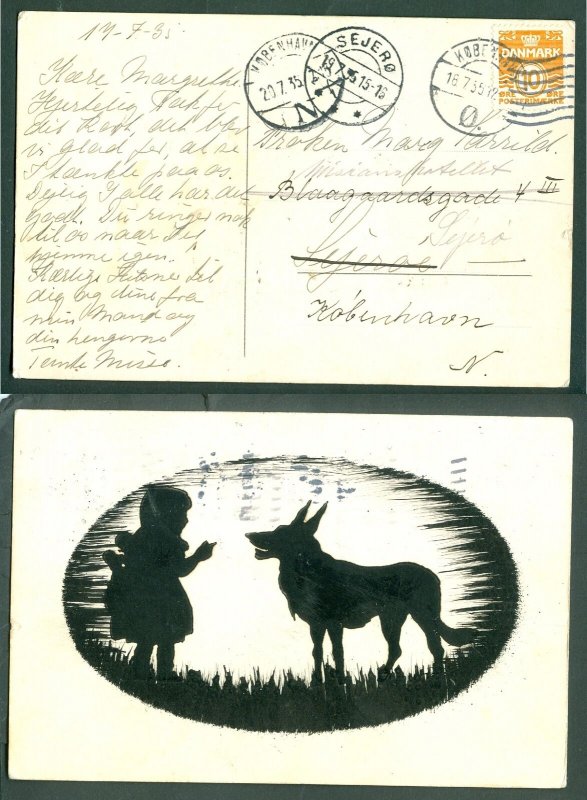 17-7-35
Kære Margrethe
Hjertelig Tak for
dit Kort, det blev
vi glad for, at se
I tænkte paa os.
Dejlig I alle har det
godt. Du ringer nok
til os naar I er
hjemme igen.
Kærlige Hilsner til
dig og dine fra
min Mand og
din hengivne
Tante Misse.
KØBENHAVN
20.7.35
N.
SEJERØ
19.7.35 15-16
KØBENHAVN
18.7.35 12
Ø.
DANMARK
10
ØRE ØRE
POSTFRIMÆRKE
Frøken Marg
Missionshotellet
Blaagaardsgade 4 III
Sejerø
Sejerø
København
N.